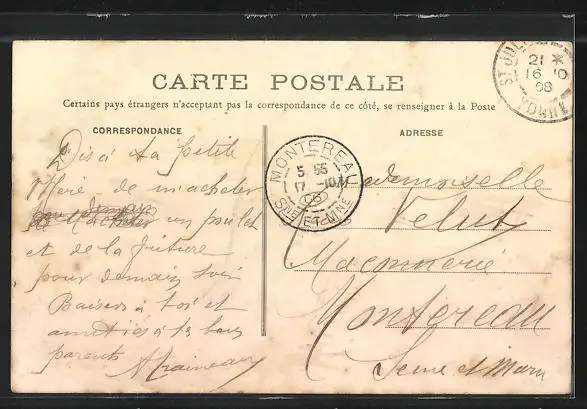 CARTE POSTALE
Certains pays étrangers n'acceptant pas la correspondance de ce côté, se renseigner à la Poste
CORRESPONDANCE
Dis à ta petite
de m'acheter
un poulet
et de la friture
pour demain soir
Baisers à toi et
amitiés à tes bons
parents
ADRESSE
Mademoiselle
Velut
Maçonnerie
Montereau
Seine et Marne
MONTEREAU
5 55
17 -10
SNE-ET-MNE
ST JULI
21 *
16 10
08
YONNE